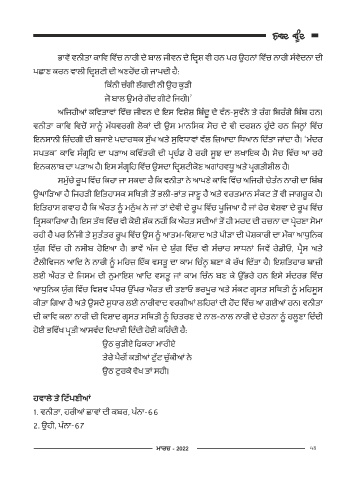 ਸ਼ਬਦ ਬੂੰਦ
ਭਾਵੇਂ ਵਨੀਤਾ ਕਾਵਿ ਵਿੱਚ ਨਾਰੀ ਦੇ ਬਾਲ ਜੀਵਨ ਦੇ ਦ੍ਰਿਸ਼ ਵੀ ਹਨ ਪਰ ਉਹਨਾਂ ਵਿੱਚ ਨਾਰੀ ਸੰਵੇਦਨਾ ਦੀ
ਪਛਾਣ ਕਰਨ ਵਾਲੀ ਦ੍ਰਿਸ਼ਟੀ ਦੀ ਅਣਹੋਂਦ ਹੀ ਜਾਪਦੀ ਹੈ:
ਕਿੰਨੀ ਚੰਗੀ ਲੱਗਦੀ ਨੀ ਉਹ ਕੁੜੀ
ਜੋ ਬਾਲ ਉਮਰੇ ਗੰਦ ਗੀਟੇ ਜਿਹੀ।'
ਅਜਿਹੀਆਂ ਕਵਿਤਾਵਾਂ ਵਿੱਚ ਜੀਵਨ ਦੇ ਇਸ ਵਿਸ਼ੇਸ਼ ਬਿੰਦੂ ਦੇ ਵੰਨ-ਸੁਵੰਨੇ ਤੇ ਰੰਗ ਬਿਰੰਗੇ ਬਿੰਬ ਹਨ।
ਵਨੀਤਾ ਕਾਵਿ ਵਿਚੋਂ ਸਾਨੂੰ ਮੱਧਵਰਗੀ ਲੋਕਾਂ ਦੀ ਉਸ ਮਾਨਸਿਕ ਸੋਚ ਦੇ ਵੀ ਦਰਸ਼ਨ ਹੁੰਦੇ ਹਨ ਜਿਨ੍ਹਾਂ ਵਿੱਚ
ਇਨਸਾਨੀ ਜ਼ਿੰਦਗੀ ਦੀ ਬਜਾਏ ਪਦਾਰਥਕ ਸੁੱਖ ਅਤੇ ਸੁਵਿਧਾਵਾਂ ਵੱਲ ਜ਼ਿਆਦਾ ਧਿਆਨ ਦਿੱਤਾ ਜਾਂਦਾ ਹੈ। 'ਮੰਦਰ
ਸਪਤਕ' ਕਾਵਿ ਸੰਗ੍ਰਹਿ ਦਾ ਪੜਾਅ ਕਵਿੱਤਰੀ ਦੀ ਪ੍ਰਚੰਡ ਹੋ ਰਹੀ ਸੂਝ ਦਾ ਲਖਾਇਕ ਹੈ। ਸੋਚ ਵਿੱਚ ਆ ਰਹੇ
ਇਨਕਲਾਬ ਦਾ ਪੜਾਅ ਹੈ। ਇਸ ਸੰਗ੍ਰਹਿ ਵਿੱਚ ਉਸਦਾ ਦ੍ਰਿਸ਼ਟੀਕੋਣ ਅਗਾਂਹਵਧੂ ਅਤੇ ਪ੍ਰਗਤੀਸ਼ੀਲ ਹੈ।
ਸਮੁੱਚੇ ਰੂਪ ਵਿੱਚ ਕਿਹਾ ਜਾ ਸਕਦਾ ਹੈ ਕਿ ਵਨੀਤਾ ਨੇ ਆਪਣੇ ਕਾਵਿ ਵਿੱਚ ਅਜਿਹੀ ਚੇਤੰਨ ਨਾਰੀ ਦਾ ਬਿੰਬ
ਉਘਾੜਿਆ ਹੈ ਜਿਹੜੀ ਇਤਿਹਾਸਕ ਸਥਿਤੀ ਤੋਂ ਭਲੀ-ਭਾਂਤ ਜਾਣੂ ਹੈ ਅਤੇ ਵਰਤਮਾਨ ਸੰਕਟ ਤੋਂ ਵੀ ਜਾਗਰੂਕ ਹੈ।
ਇਤਿਹਾਸ ਗਵਾਹ ਹੈ ਕਿ ਔਰਤ ਨੂੰ ਮਨੁੱਖ ਨੇ ਜਾਂ ਤਾਂ ਦੇਵੀ ਦੇ ਰੂਪ ਵਿੱਚ ਪੂਜਿਆ ਹੈ ਜਾਂ ਫੇਰ ਵੇਸ਼ਵਾ ਦੇ ਰੂਪ ਵਿੱਚ
ਤ੍ਰਿਸਕਾਰਿਆ ਹੈ। ਇਸ ਤੱਥ ਵਿੱਚ ਵੀ ਕੋਈ ਸ਼ੱਕ ਨਹੀਂ ਕਿ ਔਰਤ ਸਦੀਆਂ ਤੋਂ ਹੀ ਮਰਦ ਦੀ ਰਚਨਾ ਦਾ ਪ੍ਰੇਰਣਾ ਸੋਮਾ
ਰਹੀ ਹੈ ਪਰ ਇੰਨੀ ਤੇ ਸੁਤੰਤਰ ਰੂਪ ਵਿੱਚ ਉਸ ਨੂੰ ਆਤਮ-ਵਿਸ਼ਾਦ ਅਤੇ ਪੀੜਾ ਦੀ ਪੇਸ਼ਕਾਰੀ ਦਾ ਮੌਕਾ ਆਧੁਨਿਕ
ਯੁੱਗ ਵਿੱਚ ਹੀ ਨਸੀਬ ਹੋਇਆ ਹੈ। ਭਾਵੇਂ ਅੱਜ ਦੇ ਯੁੱਗ ਵਿੱਚ ਵੀ ਸੰਚਾਰ ਸਾਧਨਾਂ ਜਿਵੇਂ ਰੇਡੀਓ, ਪ੍ਰੈਸ ਅਤੇ
ਟੈਲੀਵਿਜਨ ਆਦਿ ਨੇ ਨਾਰੀ ਨੂੰ ਮਹਿਜ਼ ਇੱਕ ਵਸਤੂ ਦਾ ਕਾਮ ਚਿੰਨ੍ਹ ਬਣਾ ਕੇ ਰੱਖ ਦਿੱਤਾ ਹੈ। ਇਸ਼ਤਿਹਾਰ ਬਾਜ਼ੀ
ਲਈ ਔਰਤ ਦੇ ਜਿਸਮ ਦੀ ਨੁਮਾਇਸ਼ ਆਦਿ ਵਸਤੂ ਜਾਂ ਕਾਮ ਚਿੰਨ ਬਣ ਕੇ ਉੱਭਰੇ ਹਨ ਇਸੇ ਸੰਦਰਭ ਵਿੱਚ
ਆਧੁਨਿਕ ਯੁੱਗ ਵਿੱਚ ਵਿਸ਼ਵ ਪੱਧਰ ਉੱਪਰ ਔਰਤ ਦੀ ਤਣਾਓ ਭਰਪੂਰ ਅਤੇ ਸੰਕਟ ਗ੍ਰਸਤ ਸਥਿਤੀ ਨੂੰ ਮਹਿਸੂਸ
ਕੀਤਾ ਗਿਆ ਹੈ ਅਤੇ ਉਸਦੇ ਸੁਧਾਰ ਲਈ ਨਾਰੀਵਾਦ ਵਰਗੀਆਂ ਲਹਿਰਾਂ ਦੀ ਹੋਂਦ ਵਿੱਚ ਆ ਗਈਆਂ ਹਨ। ਵਨੀਤਾ
ਦੀ ਕਾਵਿ ਕਲਾ ਨਾਰੀ ਦੀ ਵਿਸ਼ਾਦ ਗ੍ਰਸਤ ਸਥਿਤੀ ਨੂੰ ਚਿਤਰਣ ਦੇ ਨਾਲ-ਨਾਲ ਨਾਰੀ ਦੇ ਚੇਤਨਾ ਨੂੰ ਹਲੂਣਾ ਦਿੰਦੀ
ਹੋਈ ਭਵਿੱਖ ਪ੍ਰਤੀ ਆਸਵੰਦ ਦਿਖਾਈ ਦਿੰਦੀ ਹੋਈ ਕਹਿੰਦੀ ਹੈ:
ਉਠ ਕੁੜੀਏ ਫ਼ਿਕਰਾਂ ਮਾਰੀਏ
ਤੇਰੇ ਪੈਰੀਂ ਕੜੀਆਂ ਟੁੱਟ ਚੁੱਕੀਆਂ ਨੇ
ਉਠ ਟੁਰਕੇ ਵੇਖ ਤਾਂ ਸਹੀ।
ਹਵਾਲੇ ਤੇ ਟਿੱਪਣੀਆਂ
1. ਵਨੀਤਾ, ਹਰੀਆਂ ਛਾਵਾਂ ਦੀ ਕਬਰ, ਪੰਨਾ-66
2. ਉਹੀ, ਪੰਨਾ-67
ਮਾਰਚ - 2022